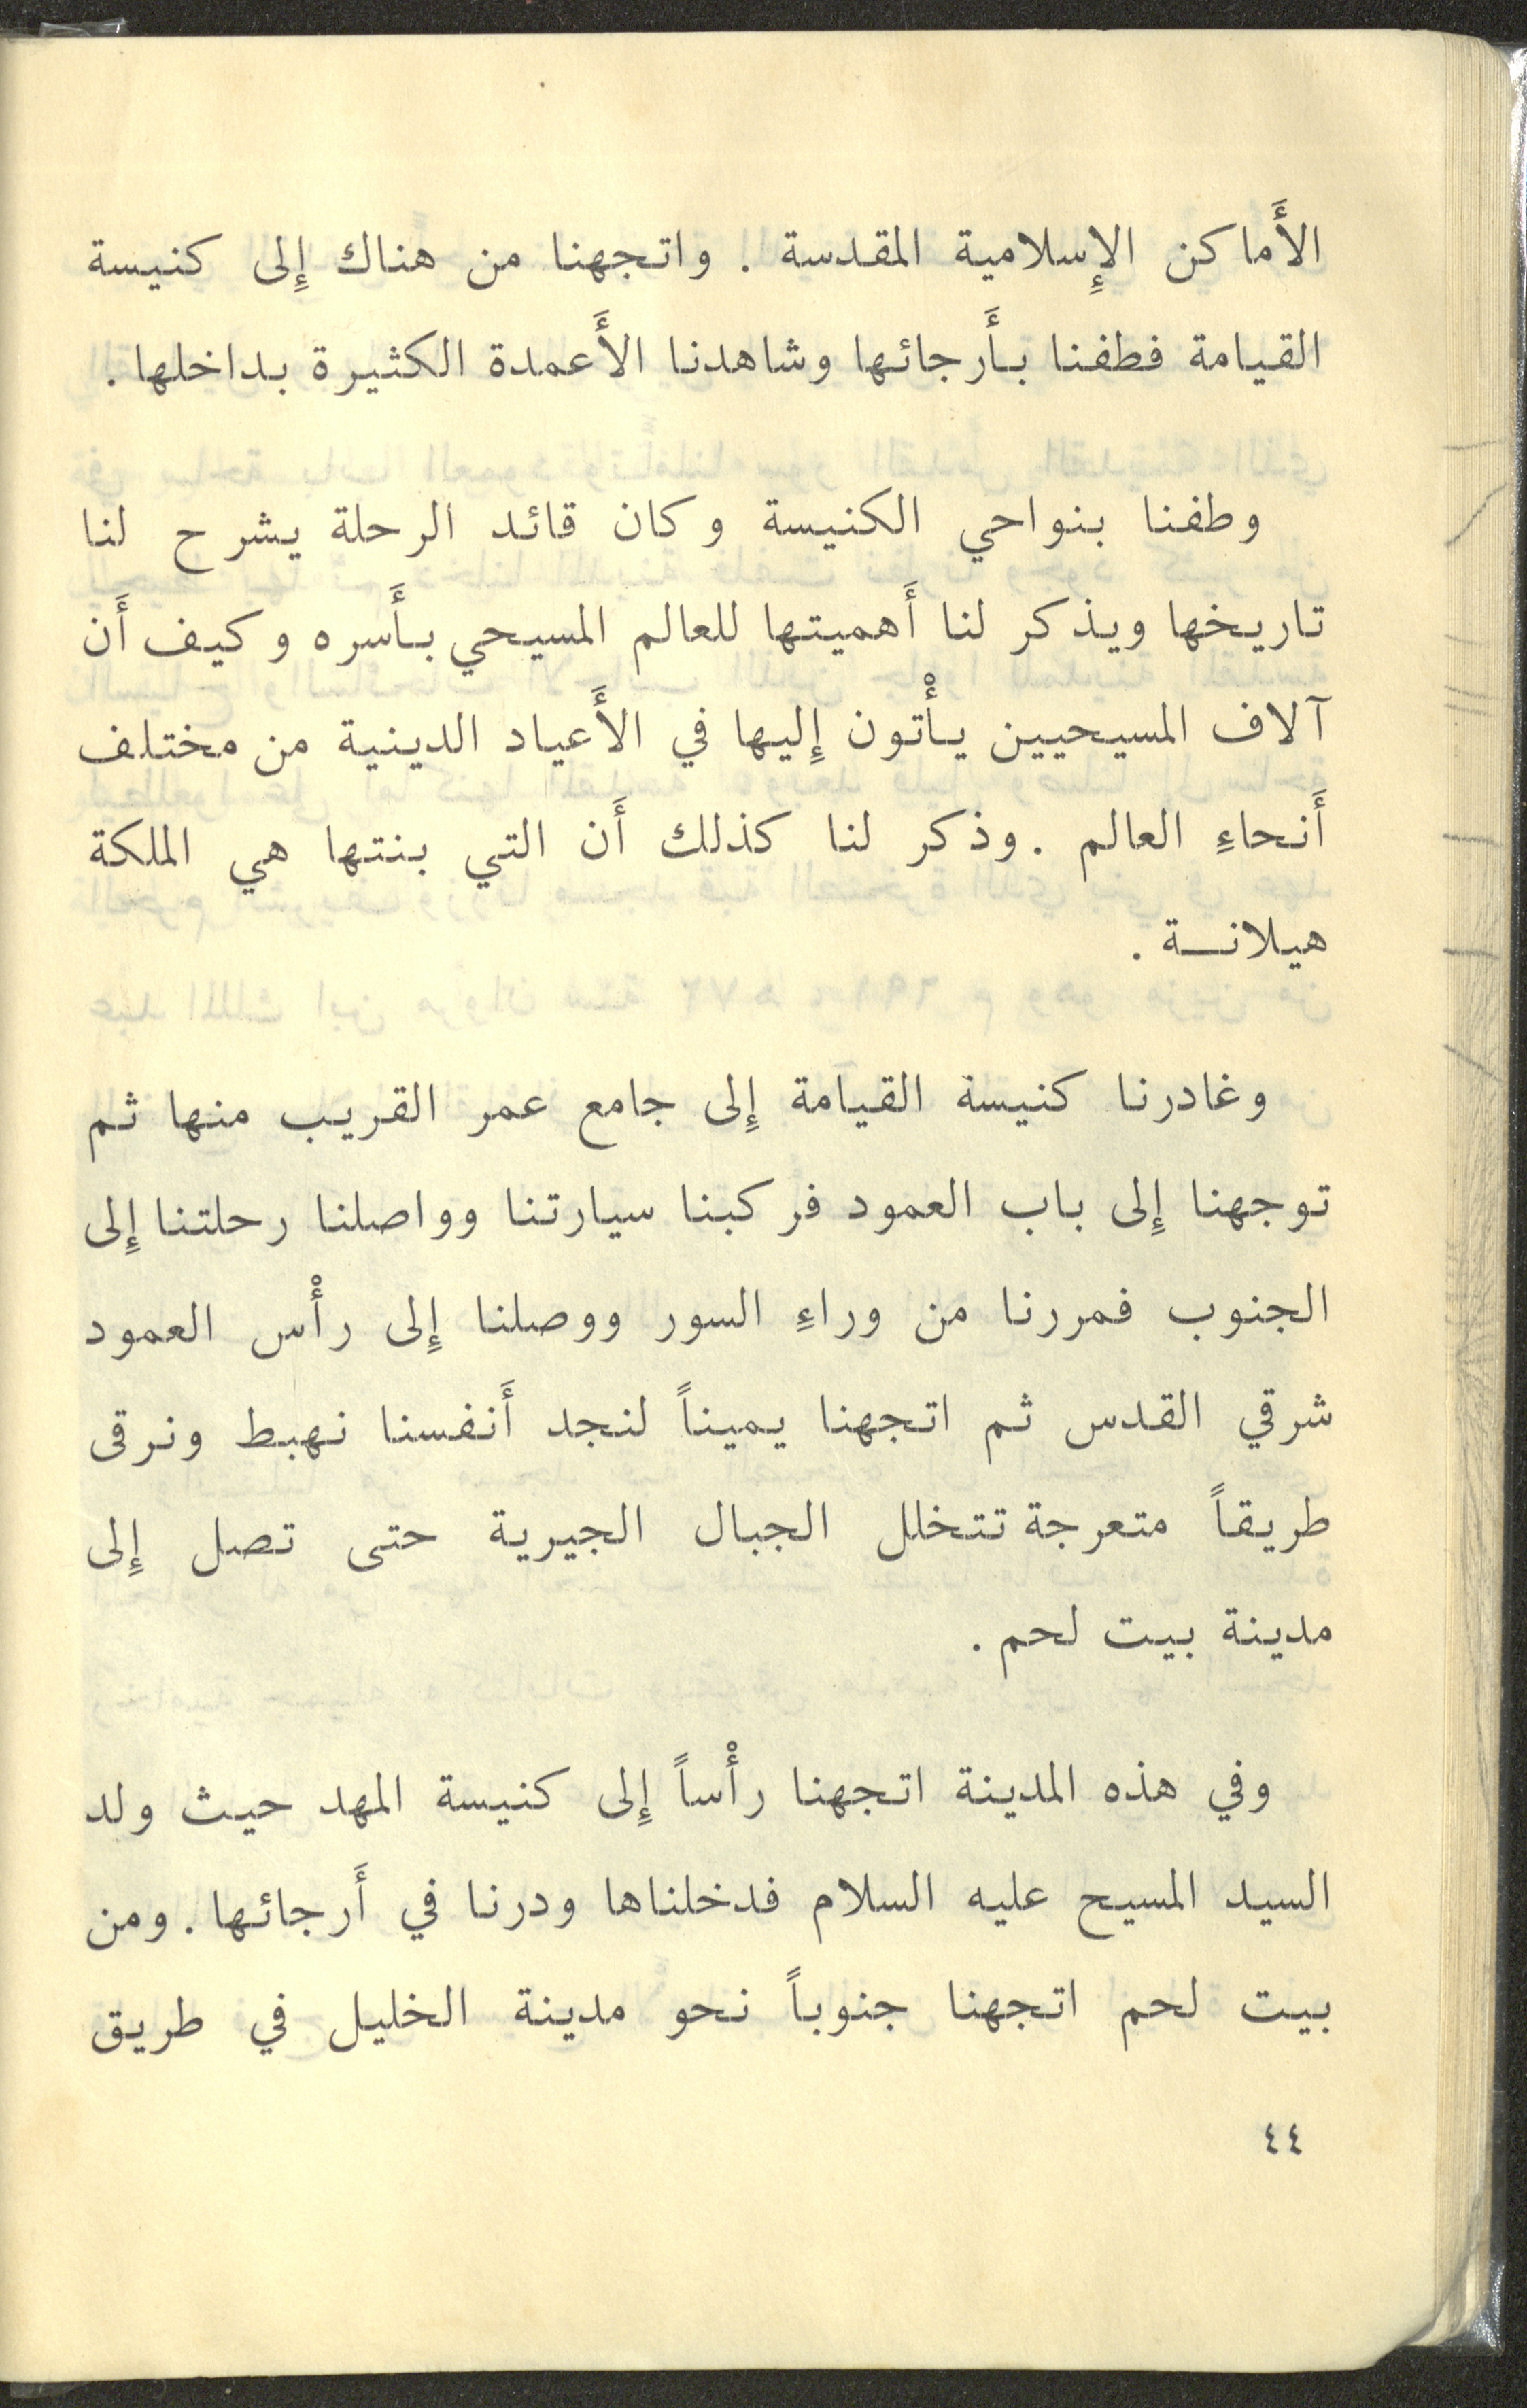 الأَماكن الإِسلامية المقدسة . واتجهنا من هناك إِلى كنيسة
القيامة فطفنا بأَرجائها وشاهدنا الأَعمدة الكثيرة بداخلها .
وطفنا بنواحي الكنيسة وكان قائد الرحلة يشرح لنا
تاريخها ويذكر لنا أَهميتها للعالم المسيحي بأَسره وكيف أَن
آلاف المسيحيين يأْتون إِليها في الأَعياد الدينية من مختلف
أَنحاءِ العالم . وذكر لنا كذلك أَن التي بنتها هي الملكة
هيلانــة .
وغادرنا كنيسة القيامة إِلى جامع عمر القريب منها ثم
توجهنا إِلى باب العمود فركبنا سيارتنا وواصلنا رحلتنا إِلى
الجنوب فمررنا من وراءِ السور ووصلنا إِلى رأْس العمود
شرقي القدس ثم اتجهنا يميناً لنجد أَنفسنا نهبط ونرقى
طريقاً متعرجة تتخلل الجبال الجيرية حتى تصل إِلى
مدينة بيت لحم .
وفي هذه المدينة اتجهنا رأْساً إِلى كنيسة المهد حيث ولد
السيد المسيح عليه السلام فدخلناها ودرنا في أَرجائها . ومن
بيت لحم اتجهنا جنوباً نحو مدينة الخليل في طريق
٤٤